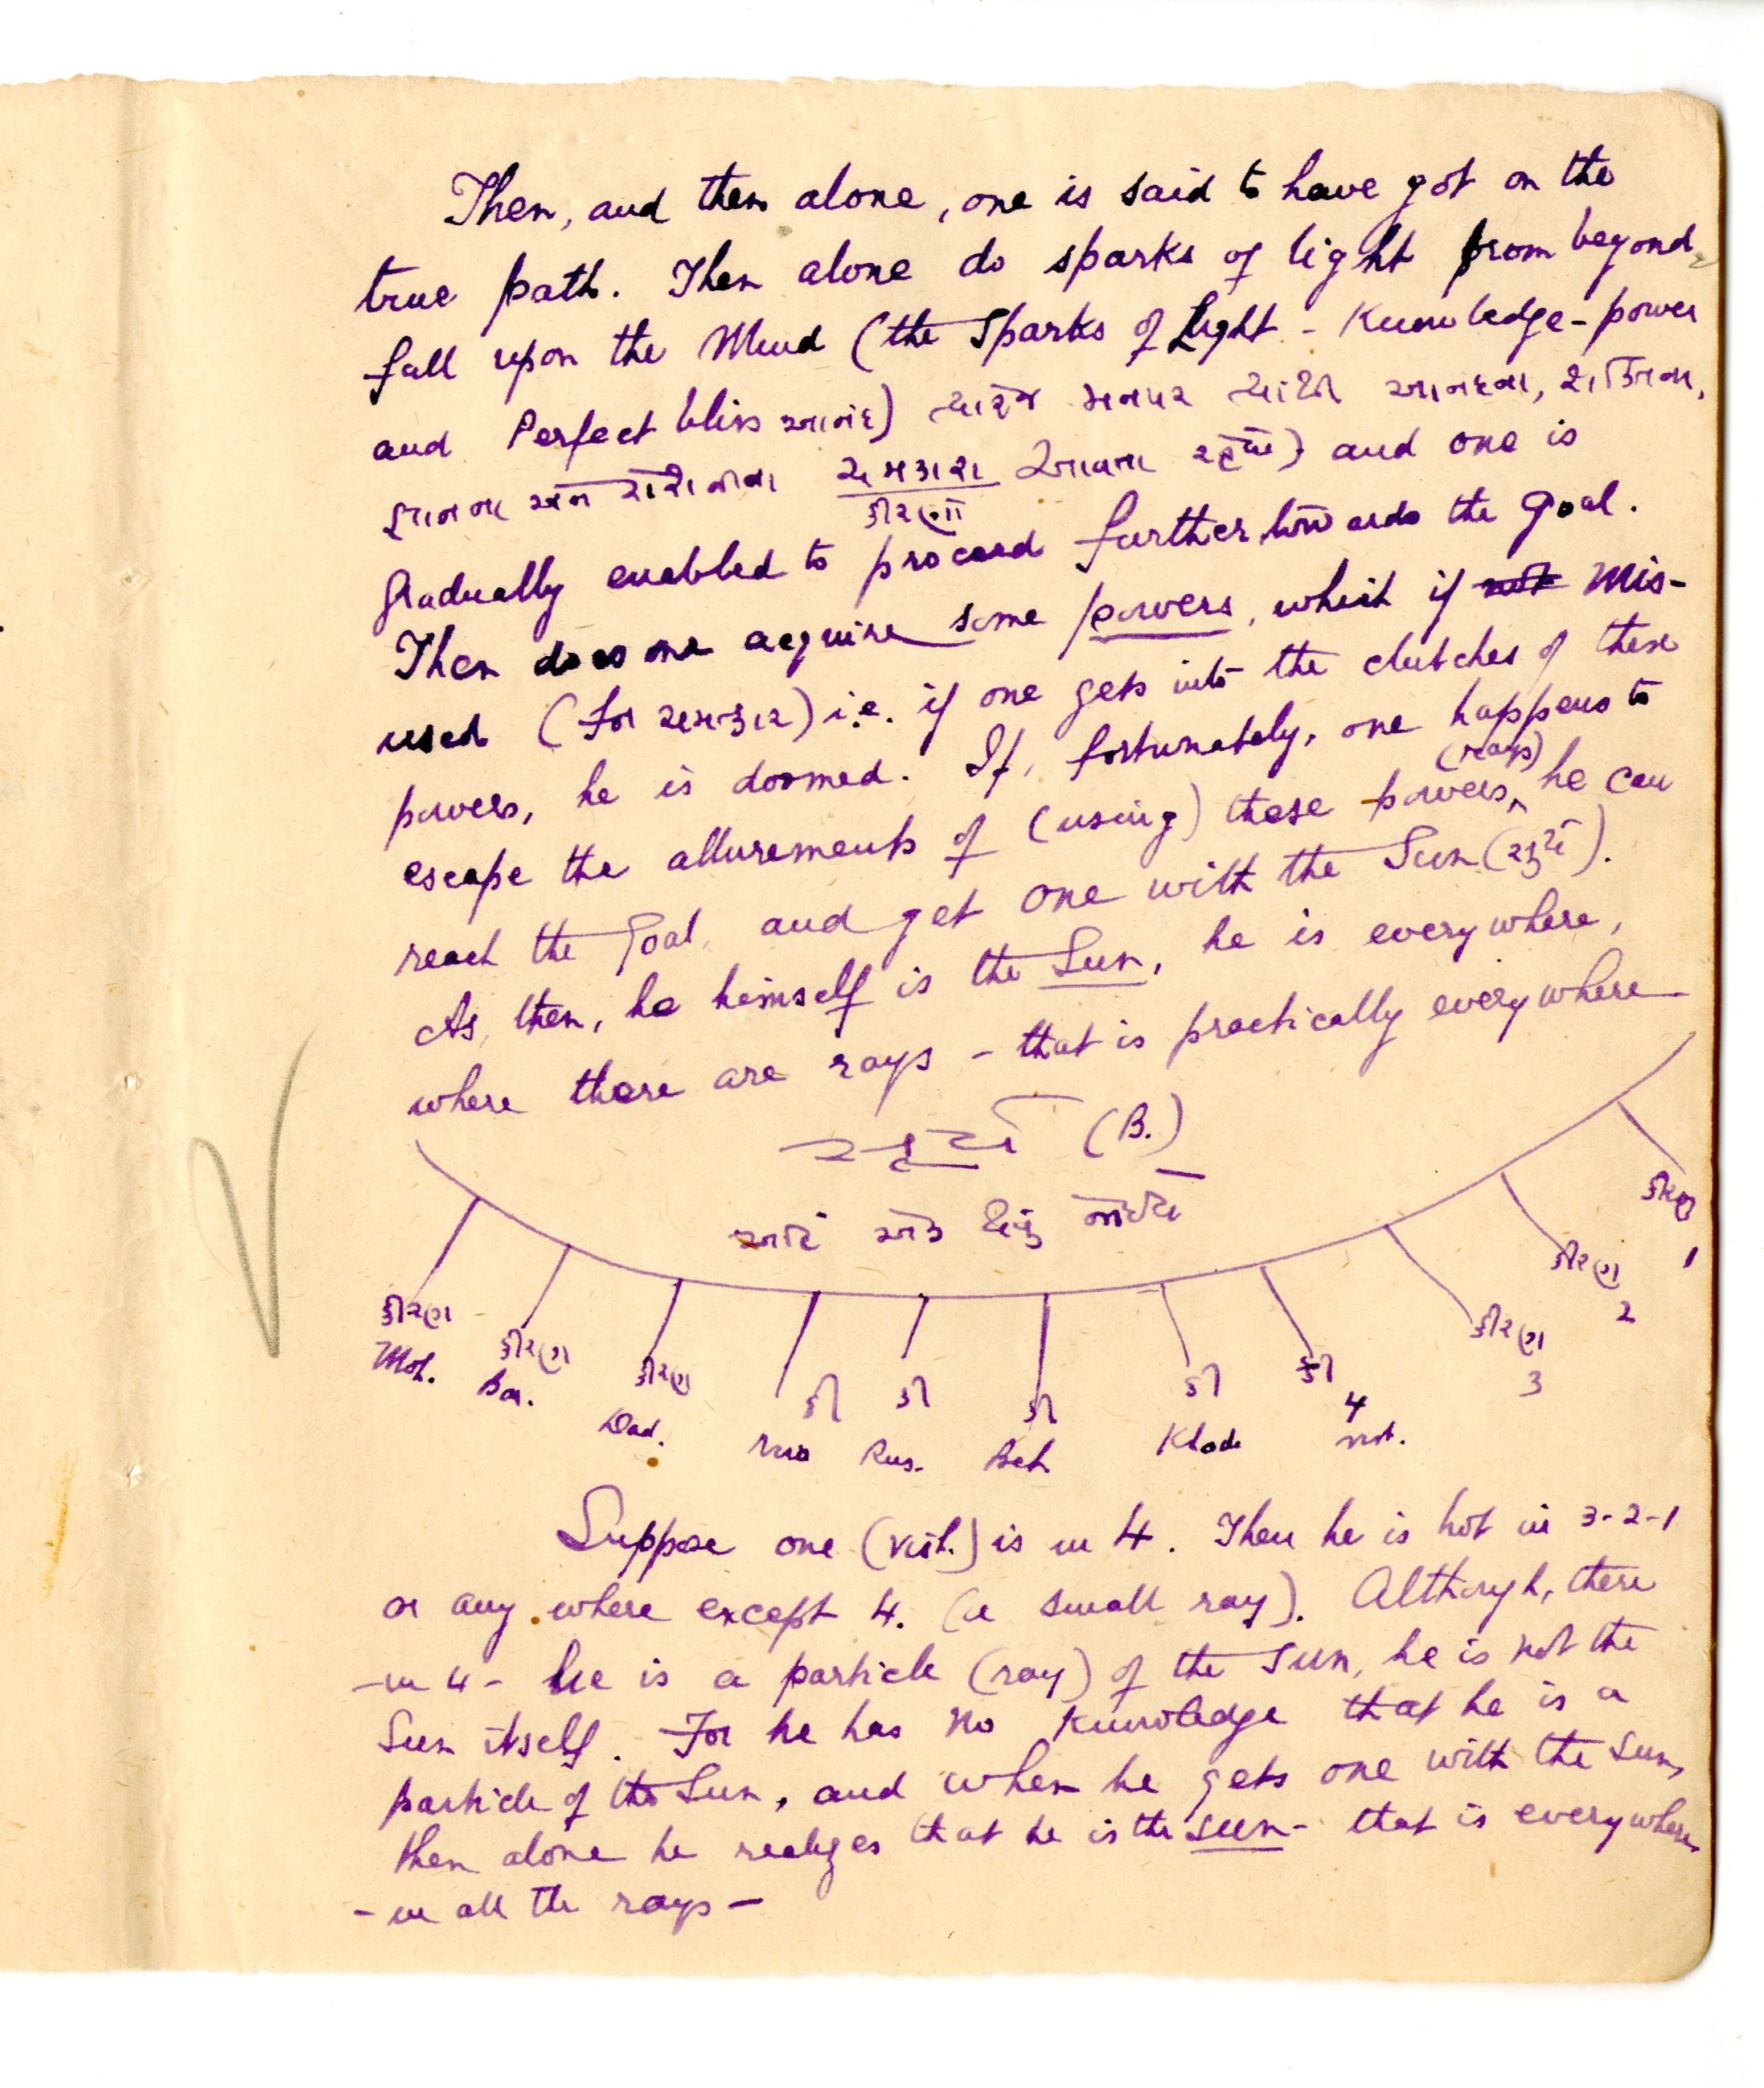 Then, and then alone, one is said to have got on the
true path. Then alone do sparks of light from beyond
fall upon the Mind (the Sparks of Light - Knowledge-power
and Perfect bliss આનંદ)
and one is
gradually enabled to proceed further towards the goal.
Then does one acquire some powers, which if not mis-
used (for ચમત્કાર) i.e. if one gets into the clutches of these
powers, he is doomed. If, fortunately, one happens to
escape the allurements of (using) these powers, (rays) he can
reach the Goal, and get one with the Sun (સૂર્ય).
As, then, he himself is the Sun, he is everywhere,
where there are rays - that is practically everywhere
સૂર્ય (B.)
કીરણ કીરણ કીરણ કી કી કી કી કી કીરણ કીરણ કીરણ
Moh. Bar. Dad. Rus. Beh. 4 3 2 1
Suppose one (vist.) is in 4. Then he is not in 3-2-1
or any where except 4. (a small ray). Although, there
- in 4 - he is a particle (ray) of the Sun, he is not the
Sun itself. For he has no knowledge that he is a
particle of the Sun, and when he gets one with the Sun,
then alone he realizes that he is the Sun - that is everywhere
- in all the rays -